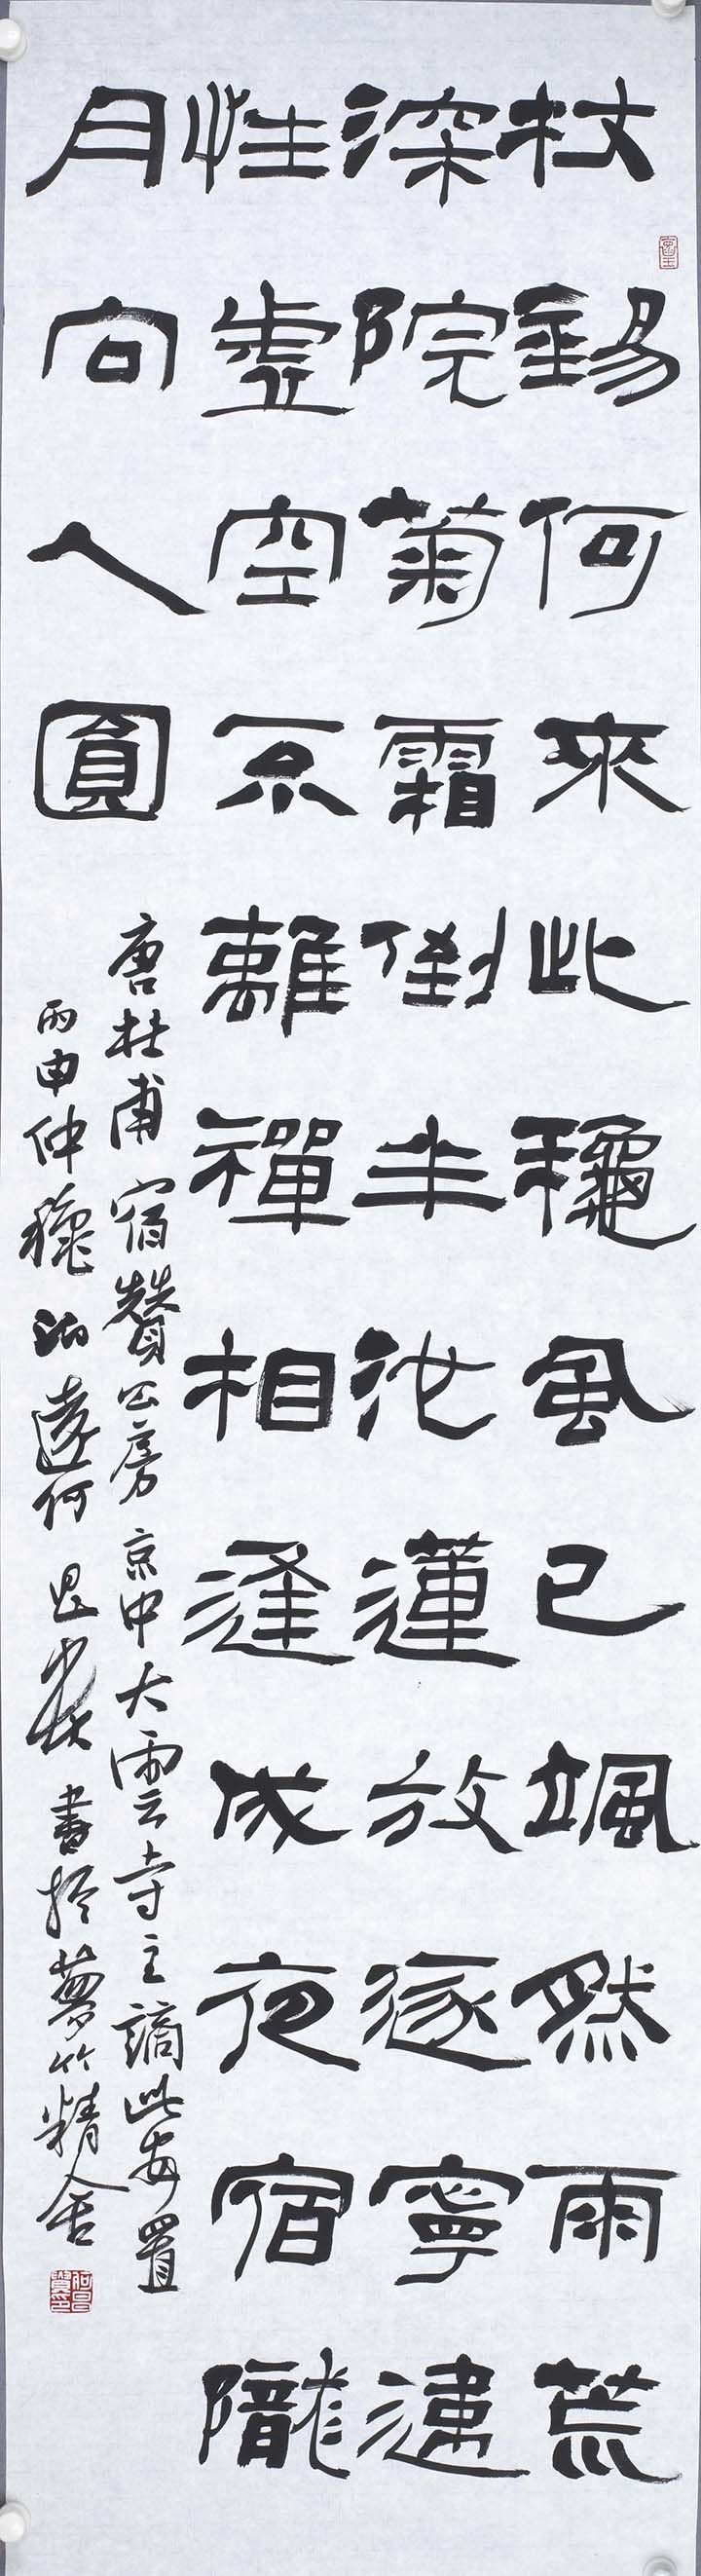 杖錫何來此龝風已颯然雨荒
深院菊霜倒半池蓮放逐寧違
性虛空不離禪相逢成夜宿隴
月向人圓
唐杜甫宿贊公房京中大雲寺主謫此安置
丙申仲龝遠何書於夢竹精舍